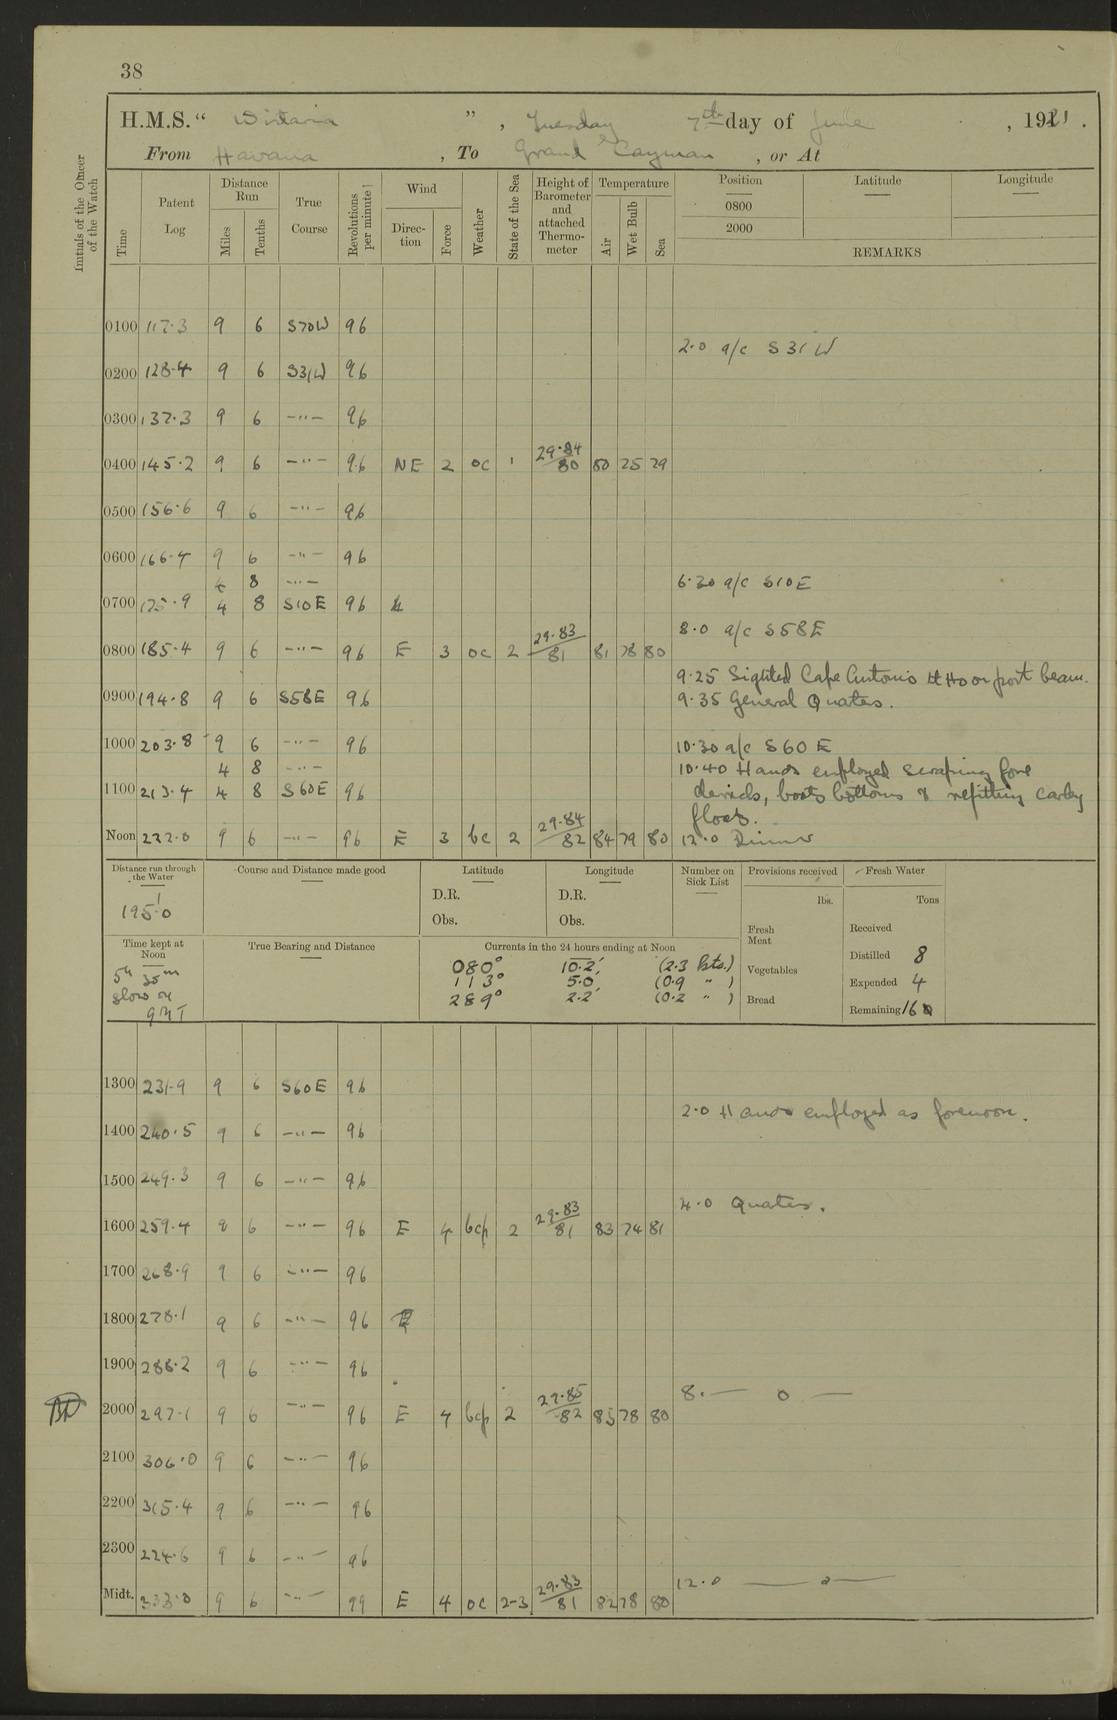 38
H.M.S. “ Wistaria ” , Tuesday 7th day of June , 1921 .
From Havana , To Grand Cayman , or At
Initials of the Officer of the Watch
Time Patent Log Distance Run Miles Tenths True Course Revolutions per minute Wind Direction Force Weather State of the Sea Height of Barometer and attached Thermometer Temperature Air Wet Bulb Sea Position 0800 2000 Latitude Longitude
REMARKS
0100 117.3 9 6 S70W 96
2.0 a/c S31W
0200 128.4 9 6 S31W 96
0300 137.3 9 6 —"— 96
0400 145.2 9 6 —"— 96 NE 2 oc 1 29.84/80 80 75 79
0500 156.6 9 6 —"— 96
0600 166.4 9 6 —"— 96
4 8 —"— 6.30 a/c S10E
0700 175.9 4 8 S10E 96
8.0 a/c S58E
0800 185.4 9 6 —"— 96 E 3 oc 2 29.83/81 81 78 80
9.25 Sighted Cape Antonio Lt Ho on port beam.
0900 194.8 9 6 S58E 96 9.35 General Quaters.
1000 203.8 9 6 —"— 96 10.30 a/c S60E
4 8 —"— 10.40 Hands employed scraping fore
1100 213.4 4 8 S60E 96 davids, boats bottoms & refitting carley
floats.
Noon 222.0 9 6 —"— 96 E 3 bc 2 29.84/82 84 79 80 12.0 Dinner
Distance run through the Water Course and Distance made good Latitude Longitude Number on Sick List Provisions received Fresh Water
195.0 D.R. D.R. lbs. Tons
Obs. Obs. Fresh Meat Received
Time kept at Noon True Bearing and Distance Currents in the 24 hours ending at Noon Distilled 8
5h 35m 080° 10.2' (2.3 kts.) Vegetables
slow on 113° 5.0' (0.9 " ) Expended 4
GMT 289° 2.2' (0.2 " ) Bread Remaining 160
1300 231.9 9 6 S60E 96
2.0 Hands employed as forenoon.
1400 240.5 9 6 —"— 96
1500 249.3 9 6 —"— 96
4.0 Quaters.
1600 259.4 9 6 —"— 96 E 4 bcp 2 29.83/81 83 74 81
1700 268.9 9 6 —"— 96
1800 278.1 9 6 —"— 96
1900 288.2 9 6 —"— 96
8. — o —
2000 297.1 9 6 —"— 96 E 4 bcp 2 29.85/82 83 78 80
2100 306.0 9 6 —"— 96
2200 315.4 9 6 —"— 96
2300 224.6 9 6 —"— 96
12.0 — o —
Midt. 333.0 9 6 —"— 99 E 4 oc 2-3 29.83/81 82 78 80